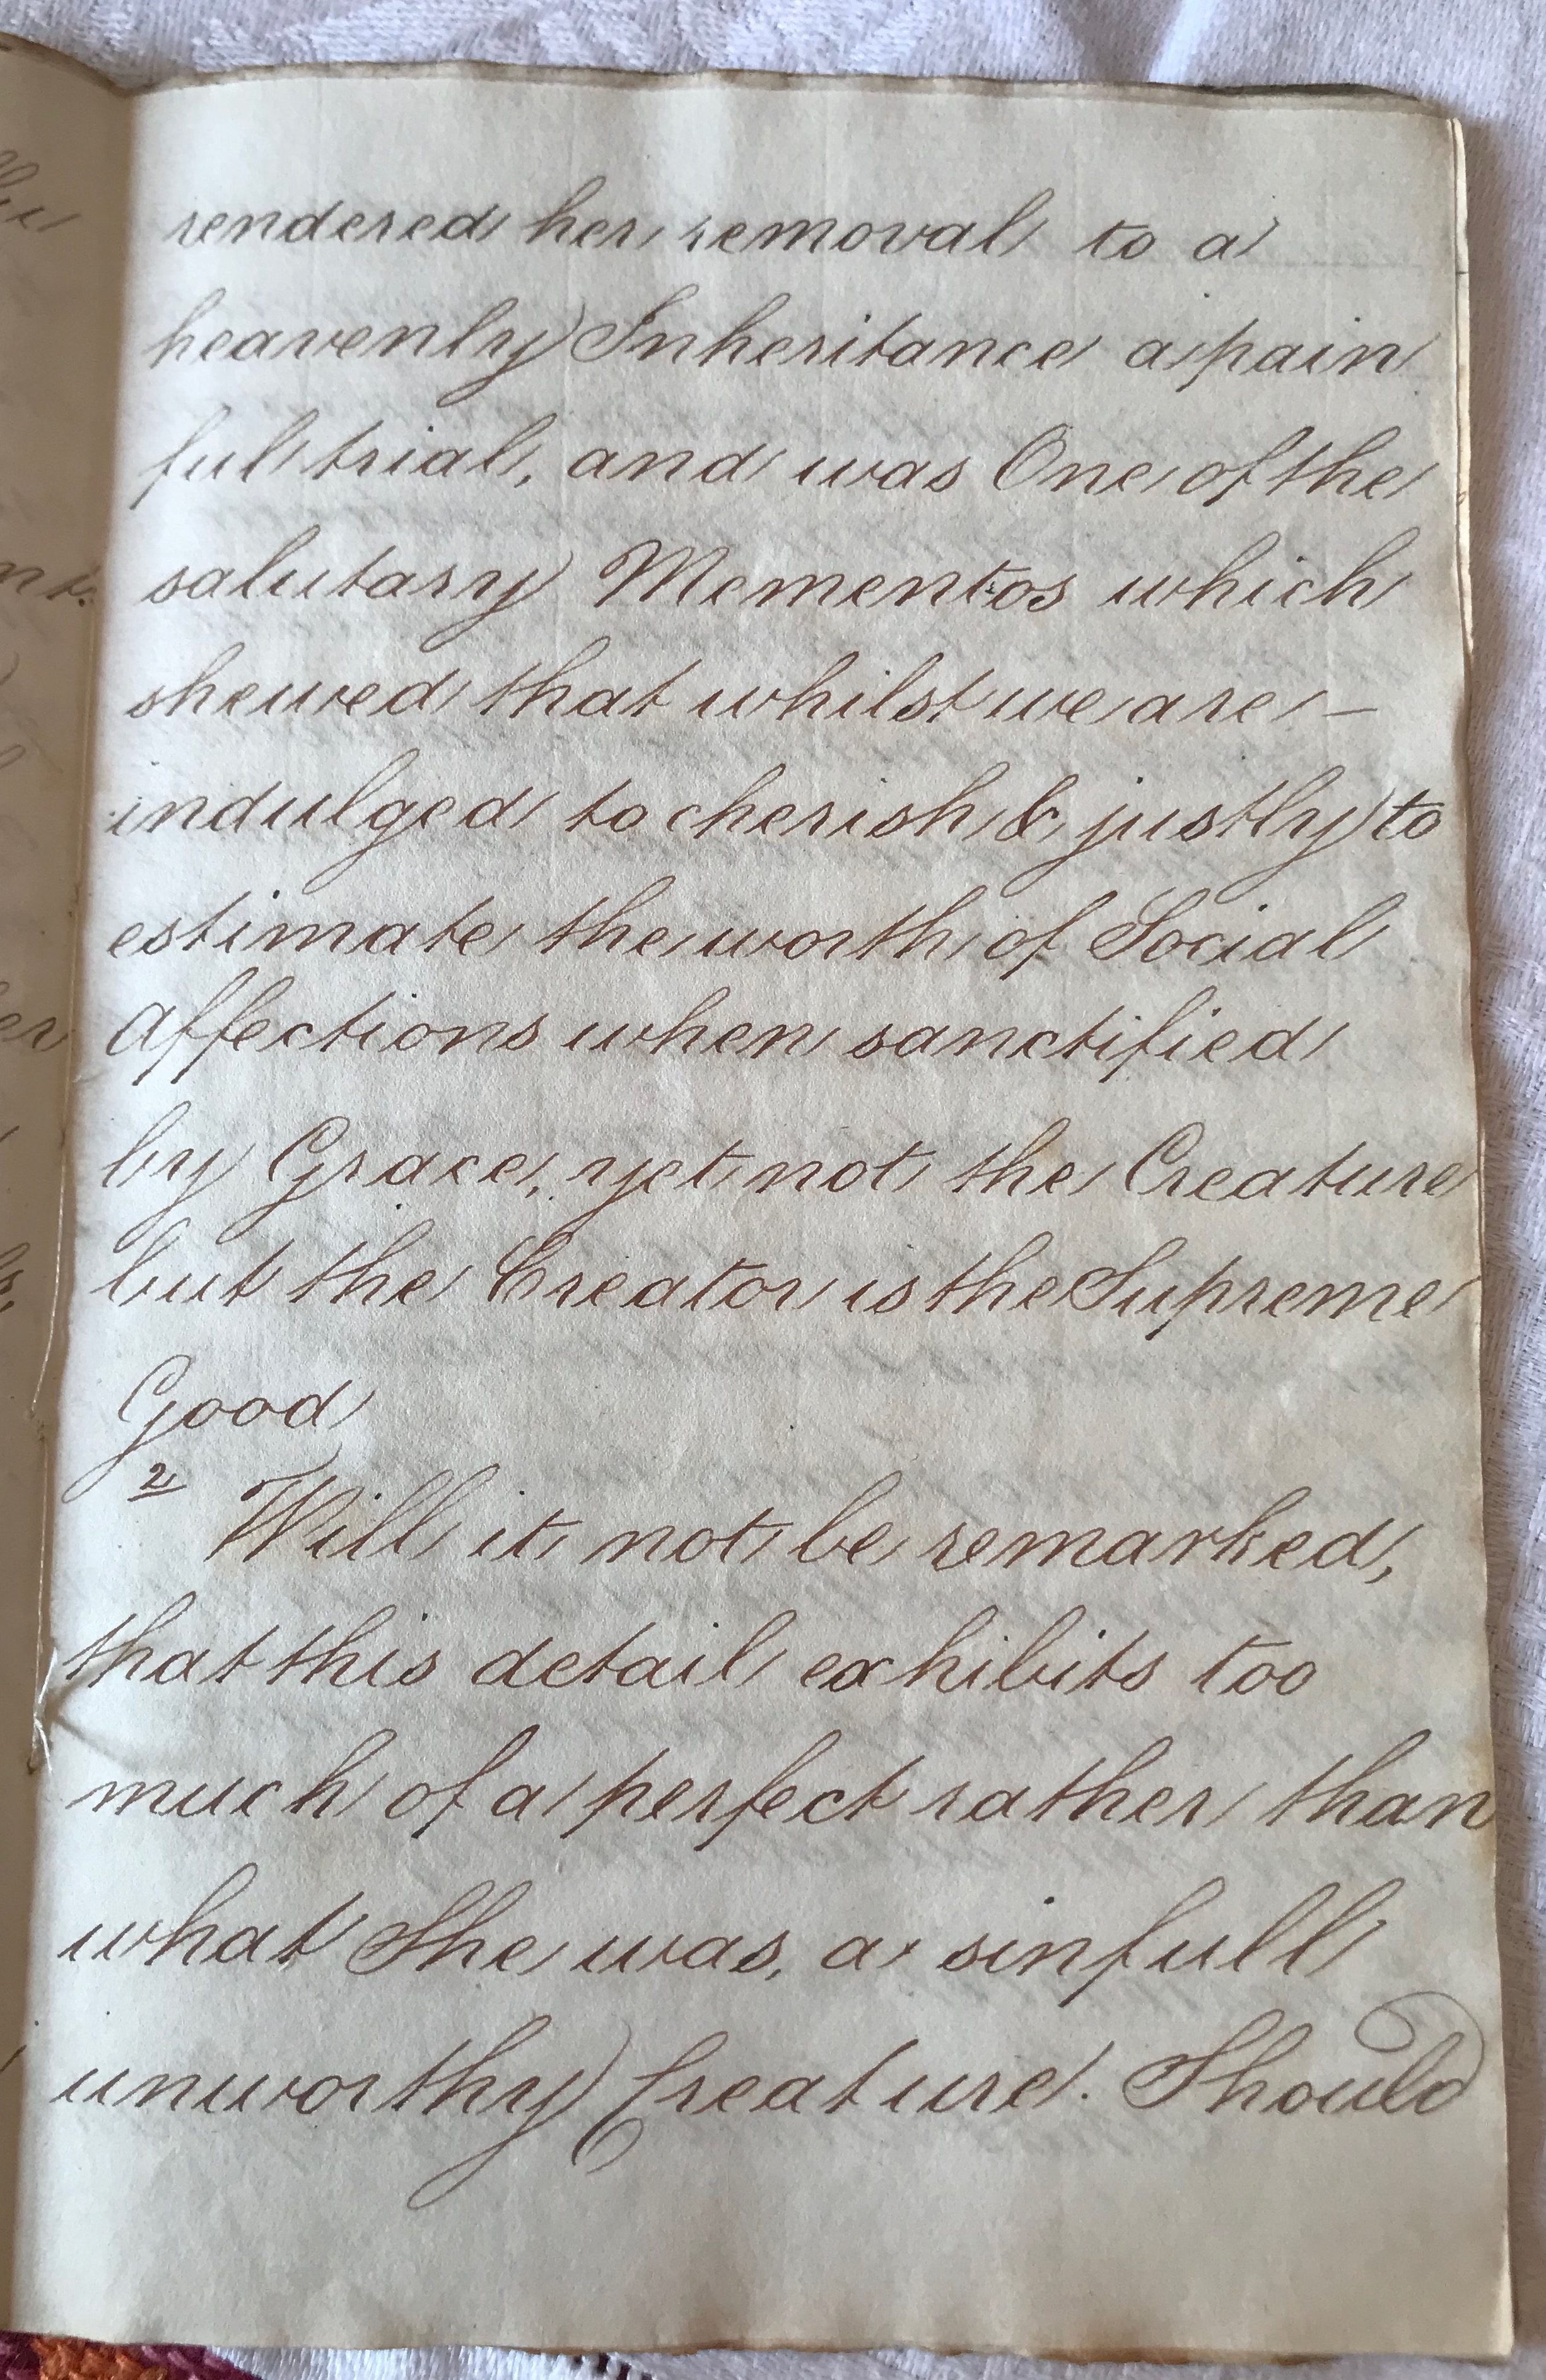 rendered her removal to a
heavenly Inheritance a pain
ful trial, and was One of the
salutary Mementos which
shewed that whilst we are –
indulged to cherish & justly to
estimate the worth of Social
Affections when sanctified
by Grace, yet not the Creature
but the Creator is the Supreme
Good
2
Will it not be remarked,
that this detail exhibits too
much of a perfect rather than
what She was, a sinfull
unworthy Creature. Should